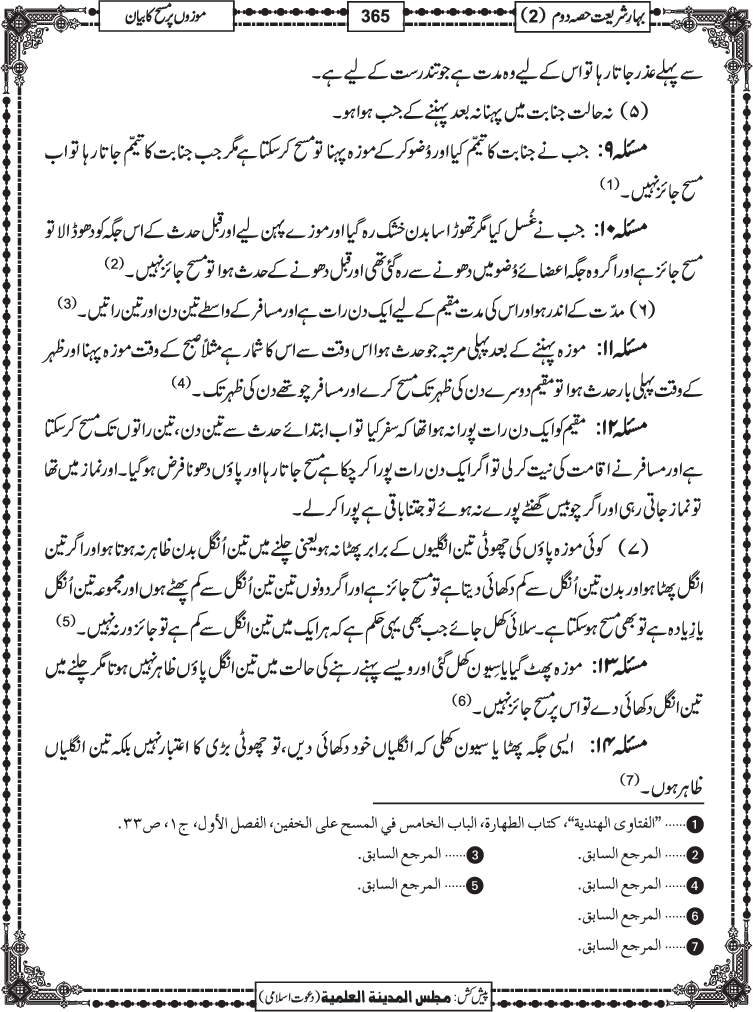 بہارِ شریعت حصہ دوم (2)
365
موزوں پر مسح کا بیان
سے پہلے عذر جاتا رہا تو اس کے لیے وہ مدت ہے جو تندرست کے لیے ہے۔
(۵) نہ حالت جنابت میں پہنا نہ بعد پہننے کے جنب ہوا ہو۔
مسئلہ ۹: جنب نے جنابت کا تیمّم کیا اور وُضو کر کے موزہ پہنا تو مسح کر سکتا ہے مگر جب جنابت کا تیمّم جاتا رہا تو اب
مسح جائز نہیں۔ (1)
مسئلہ ۱۰: جنب نے غُسل کیا مگر تھوڑا سا بدن خشک رہ گیا اور موزے پہن لیے اور قبل حدث کے اس جگہ کو دھو ڈالا تو
مسح جائز ہے اور اگر وہ جگہ اعضائے وُضو میں دھونے سے رہ گئی تھی اور قبل دھونے کے حدث ہوا تو مسح جائز نہیں۔ (2)
(۶) مدّت کے اندر ہو اور اس کی مدت مقیم کے لیے ایک دن رات ہے اور مسافر کے واسطے تین دن اور تین راتیں۔ (3)
مسئلہ ۱۱: موزہ پہننے کے بعد پہلی مرتبہ جو حدث ہوا اس وقت سے اس کا شمار ہے مثلاً صبح کے وقت موزہ پہنا اور ظہر
کے وقت پہلی بار حدث ہوا تو مقیم دوسرے دن کی ظہر تک مسح کرے اور مسافر چوتھے دن کی ظہر تک۔ (4)
مسئلہ ۱۲: مقیم کو ایک دن رات پورا نہ ہوا تھا کہ سفر کیا تو اب ابتدائے حدث سے تین دن، تین راتوں تک مسح کر سکتا
ہے اور مسافر نے اقامت کی نیت کر لی تو اگر ایک دن رات پورا کر چکا ہے مسح جاتا رہا اور پاؤں دھونا فرض ہو گیا۔ اور نماز میں تھا
تو نماز جاتی رہی اور اگر چوبیس گھنٹے پورے نہ ہوئے تو جتنا باقی ہے پورا کر لے۔
(۷) کوئی موزہ پاؤں کی چھوٹی تین انگلیوں کے برابر پھٹا نہ ہو یعنی چلنے میں تین اُنگل بدن ظاہر نہ ہوتا ہو اور اگر تین
انگل پھٹا ہو اور بدن تین اُنگل سے کم دکھائی دیتا ہے تو مسح جائز ہے اور اگر دونوں تین تین اُنگل سے کم پھٹے ہوں اور مجموعہ تین اُنگل
یا زِیادہ ہے تو بھی مسح ہو سکتا ہے۔ سلائی کھل جائے جب بھی یہی حکم ہے کہ ہر ایک میں تین انگل سے کم ہے تو جائز ورنہ نہیں۔ (5)
مسئلہ ۱۳: موزہ پھٹ گیا یا سِیون کھل گئی اور ویسے پہنے رہنے کی حالت میں تین انگل پاؤں ظاہر نہیں ہوتا مگر چلنے میں
تین انگل دکھائی دے تو اس پر مسح جائز نہیں۔ (6)
مسئلہ ۱۴: ایسی جگہ پھٹا یا سیون کھلی کہ انگلیاں خود دکھائی دیں، تو چھوٹی بڑی کا اعتبار نہیں بلکہ تین انگلیاں
ظاہر ہوں۔ (7)
1 ...... "الفتاوی الهندية"، كتاب الطهارة، الباب الخامس في المسح على الخفين، الفصل الأول، ج۱، ص۳۳.
2 ...... المرجع السابق. 3 ...... المرجع السابق.
4 ...... المرجع السابق. 5 ...... المرجع السابق.
6 ...... المرجع السابق.
7 ...... المرجع السابق.
پیش کش: مجلس المدينة العلمية (دعوت اسلامی)